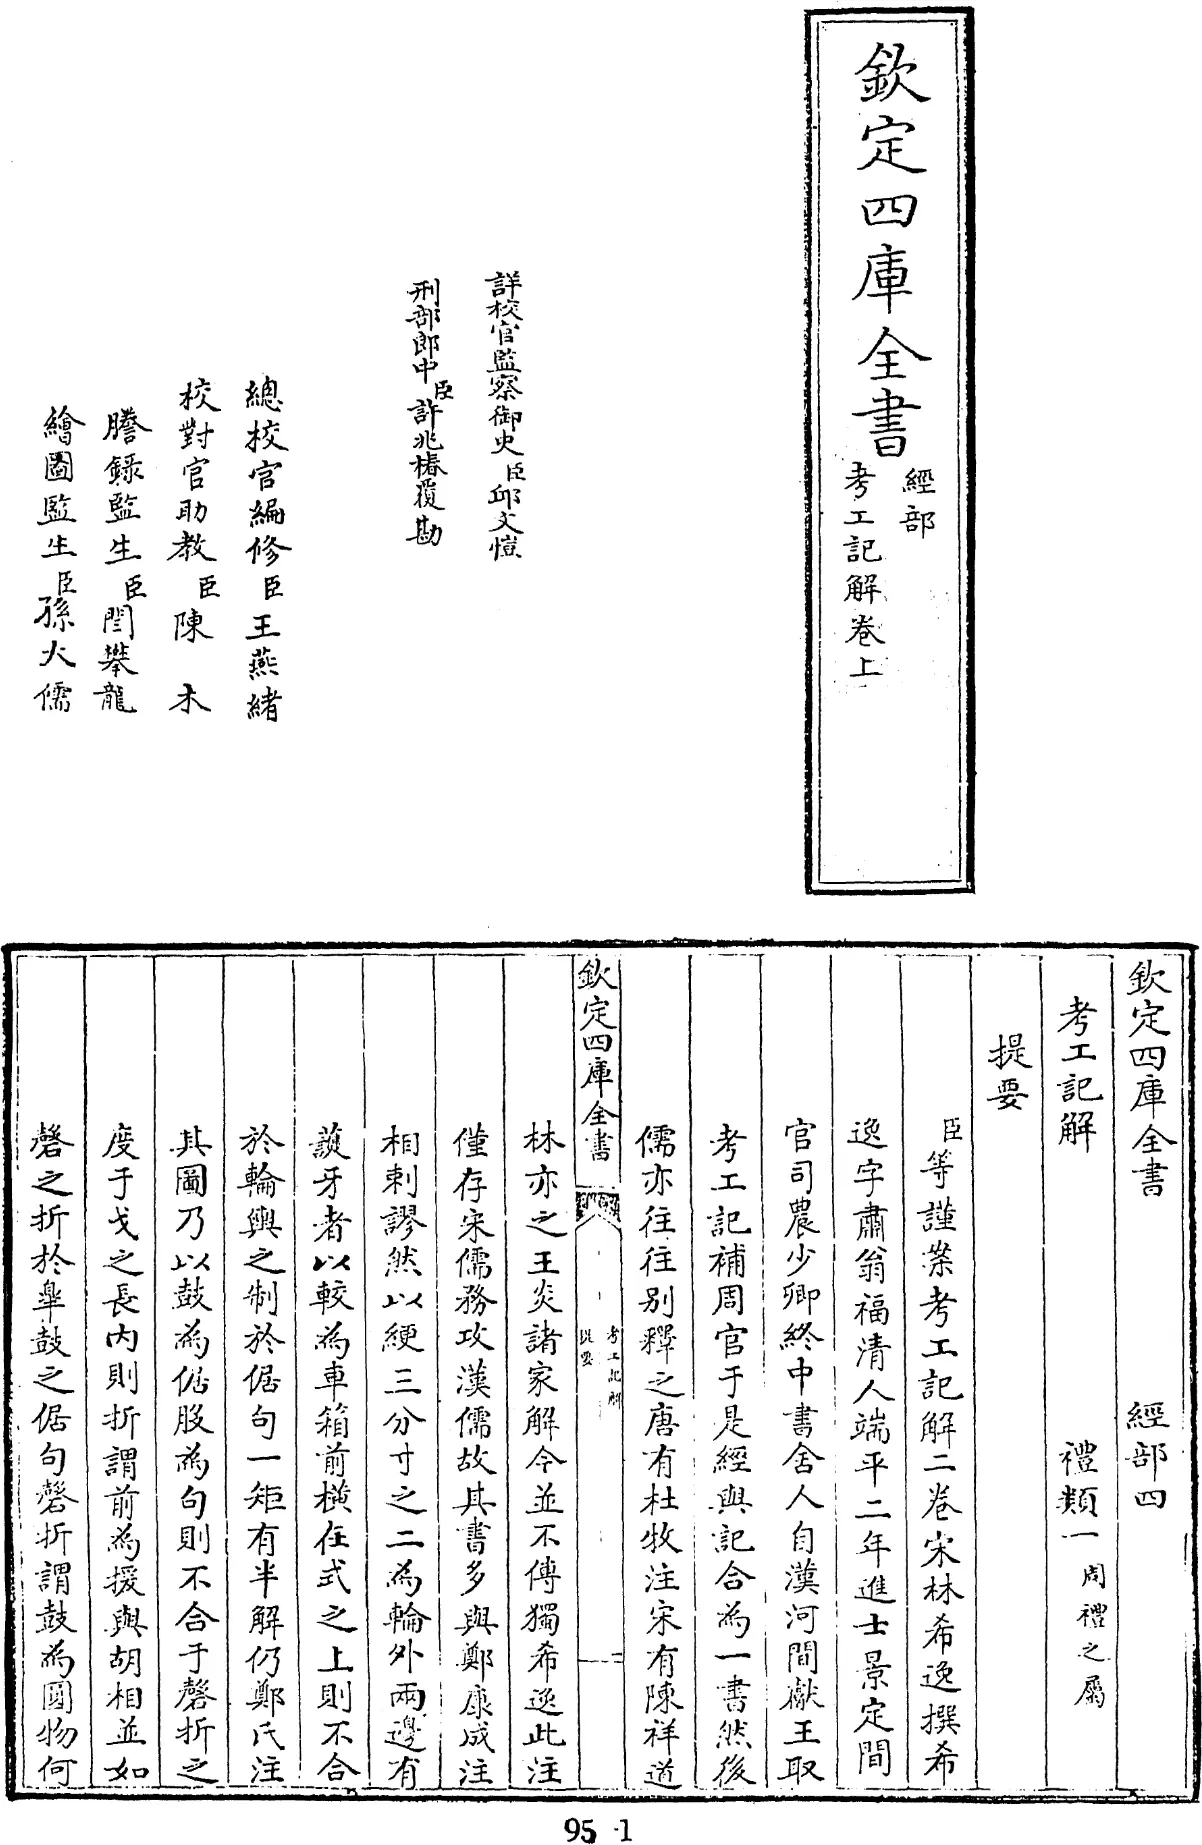 欽定四庫全書
經部
考工記解卷上
詳校官監察御史臣邱文愷
刑部郎中臣許兆椿覆勘
總校官編修臣王燕緒
校對官助教臣陳木
謄錄監生臣閆攀龍
繪圖監生臣孫大儒
欽定四庫全書 經部四
考工記解 禮類一周禮之屬
提要
臣等謹案考工記解二卷宋林希逸撰希
逸字肅翁福清人端平二年進士景定間
官司農少卿終中書舍人自漢河間獻王取
考工記補周官于是經與記合為一書然後
儒亦往往別釋之唐有杜牧注宋有陳祥道
欽定四庫全書
考工記解
提要
一
林亦之王炎諸家解今並不傳獨希逸此注
僅存宋儒務攻漢儒故其書多與鄭康成注
相剌謬然以綆三分寸之二為輪外兩邊有
護牙者以較為車箱前橫在式之上則不合
於輪輿之制於倨句一矩有半解仍鄭氏注
其圖乃以鼓為倨股為句則不合于磬折之
度于戈之長內則折謂前為援與胡相並如
磬之折於臯鼓之倨句磬折謂鼓為圓物何
95-1